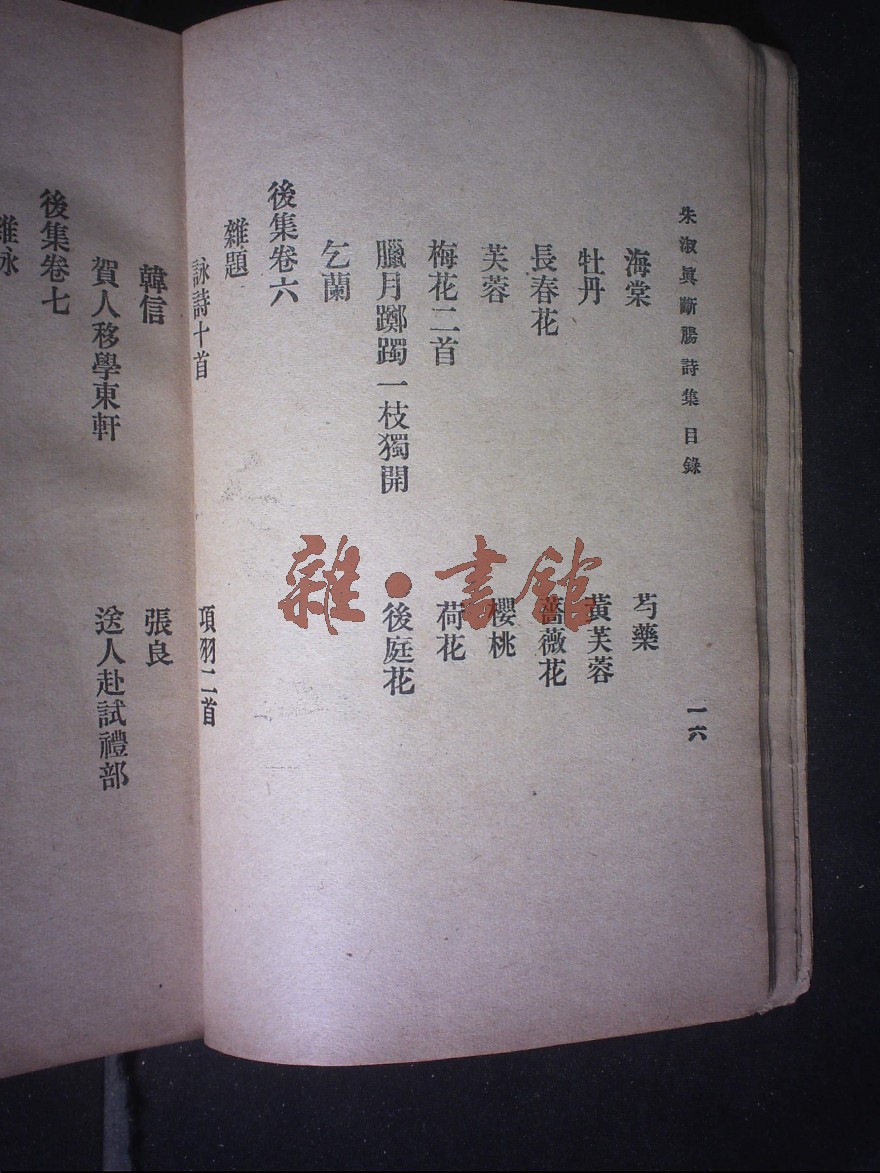 朱淑眞斷腸詩集 目錄 一六
海棠 芍藥
牡丹 黃芙蓉
長春花 薔薇花
芙蓉 櫻桃
梅花二首 荷花
臘月躑躅一枝獨開 後庭花
乞蘭
後集卷六
雜題
詠詩十首 項羽二首
韓信 張良
賀人移學東軒 送人赴試禮部
後集卷七
雜詠
雜·書館